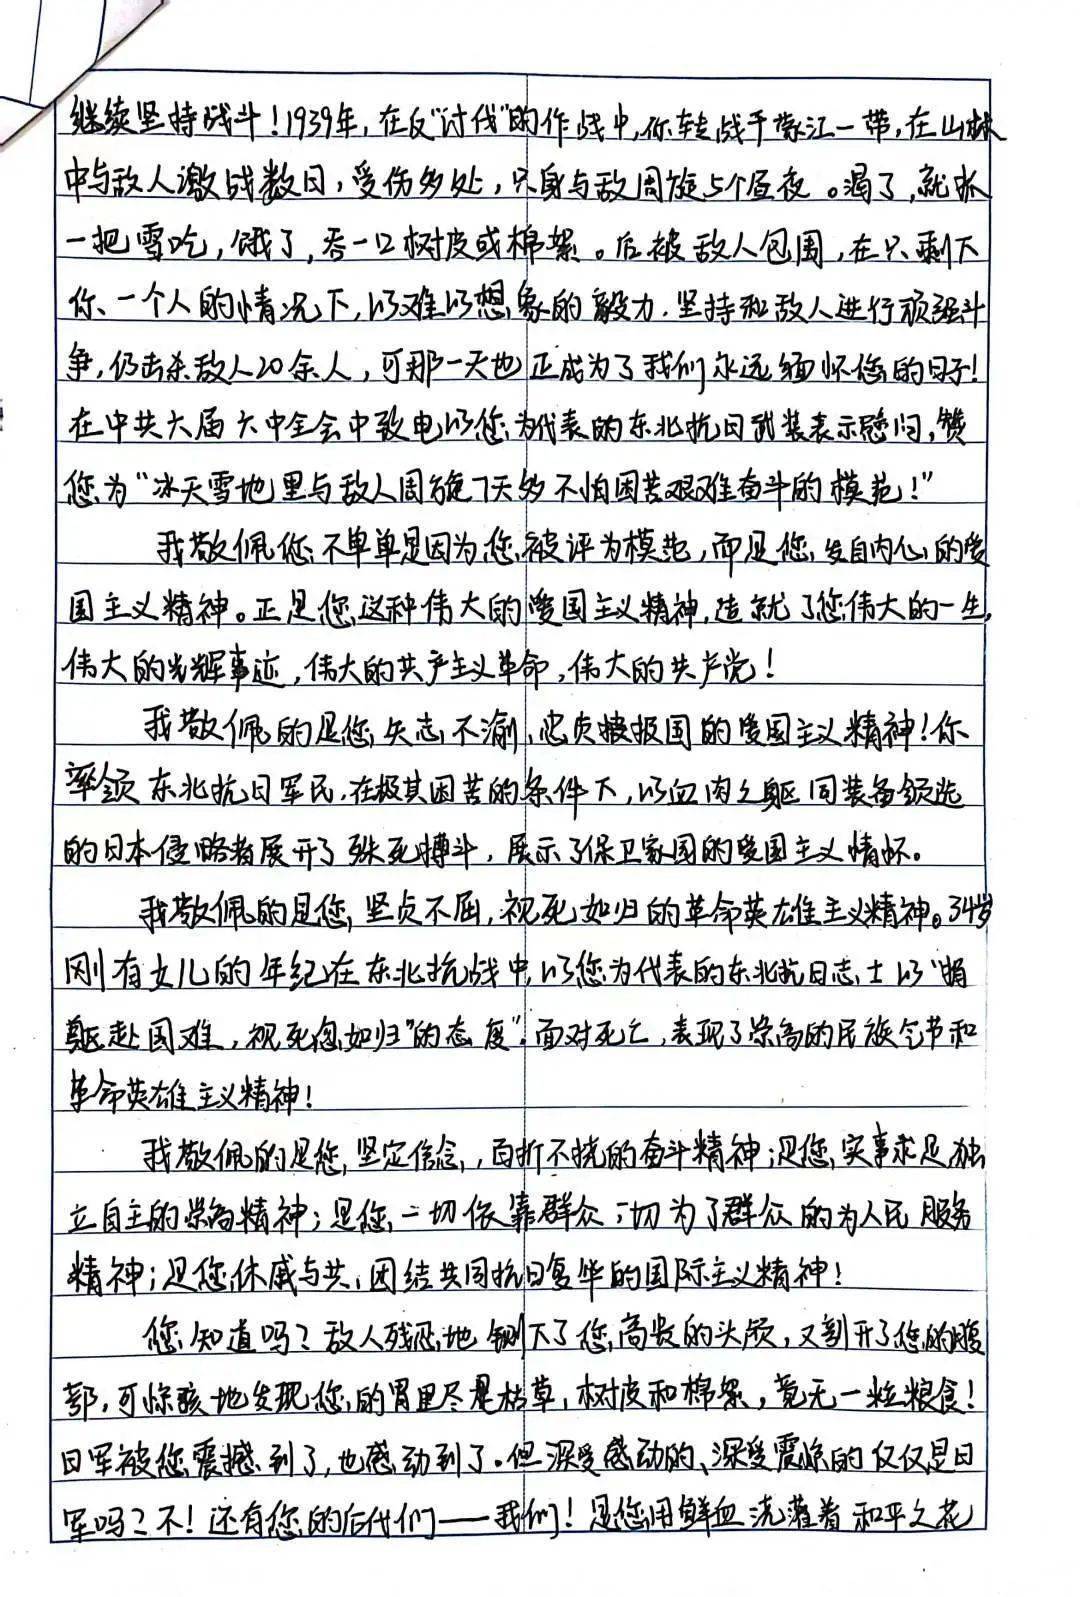 继续坚持战斗！1939年，在反“讨伐”的作战中，你转战于蒙江一带，在山林
中与敌人激战数日，受伤多处，只身与敌周旋5个昼夜。渴了，就抓
一把雪吃，饿了，吞一口树皮或棉絮。后被敌人包围，在只剩下
你一个人的情况下，以难以想象的毅力，坚持和敌人进行顽强斗
争，仍击杀敌人20余人，可那一天也正成为了我们永远缅怀您的日子！
在中共六届六中全会中致电以您为代表的东北抗日武装表示慰问，赞
您为“冰天雪地里与敌人周旋7天多不怕困苦艰难奋斗的模范！”
我敬佩您不单单是因为您被评为模范，而是您发自内心的爱
国主义精神。正是您这种伟大的爱国主义精神，造就了您伟大的一生，
伟大的光辉事迹，伟大的共产主义革命，伟大的共产党！
我敬佩的是您矢志不渝，忠贞报国的爱国主义精神！你
率领东北抗日军民，在极其困苦的条件下，以血肉之躯同装备领先
的日本侵略者展开了殊死搏斗，展示了保卫家国的爱国主义情怀。
我敬佩的是您坚贞不屈，视死如归的革命英雄主义精神。34岁
刚有女儿的年纪在东北抗战中，以您为代表的东北抗日志士以“捐
躯赴国难，视死忽如归”的态度”面对死亡，表现了崇高的民族气节和
革命英雄主义精神！
我敬佩的是您坚定信念，百折不挠的奋斗精神；是您实事求是，独
立自主的崇高精神；是您一切依靠群众一切为了群众的为人民服务
精神；是您休戚与共，团结共同抗日复华的国际主义精神！
您知道吗？敌人残忍地铡下了您高贵的头颅，又剖开了您的腹
部，可惊骇地发现您的胃里尽是枯草，树皮和棉絮，竟无一粒粮食！
日军被您震撼到了，也感动到了。但深受感动的、深受震惊的仅仅是日
军吗？不！还有您的后代们——我们！是您用鲜血浇灌着和平之花